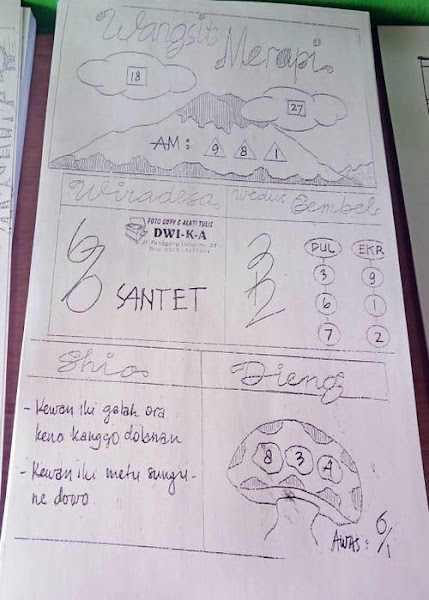 Wangsit Merapi
18
27
AM: 9 8 1
Wiradesa
Wedus Gembel
FOTO COPY & ALAT TULIS
DWI-K-A
SANTET
PUL EKR
3 9
6 1
7 2
Shio
Dieng
- Kewan iki galak ora
keno kanggo dolanan
- Kewan iki metu sungu-
ne dowo
8 3 4
AWAS: 6/1